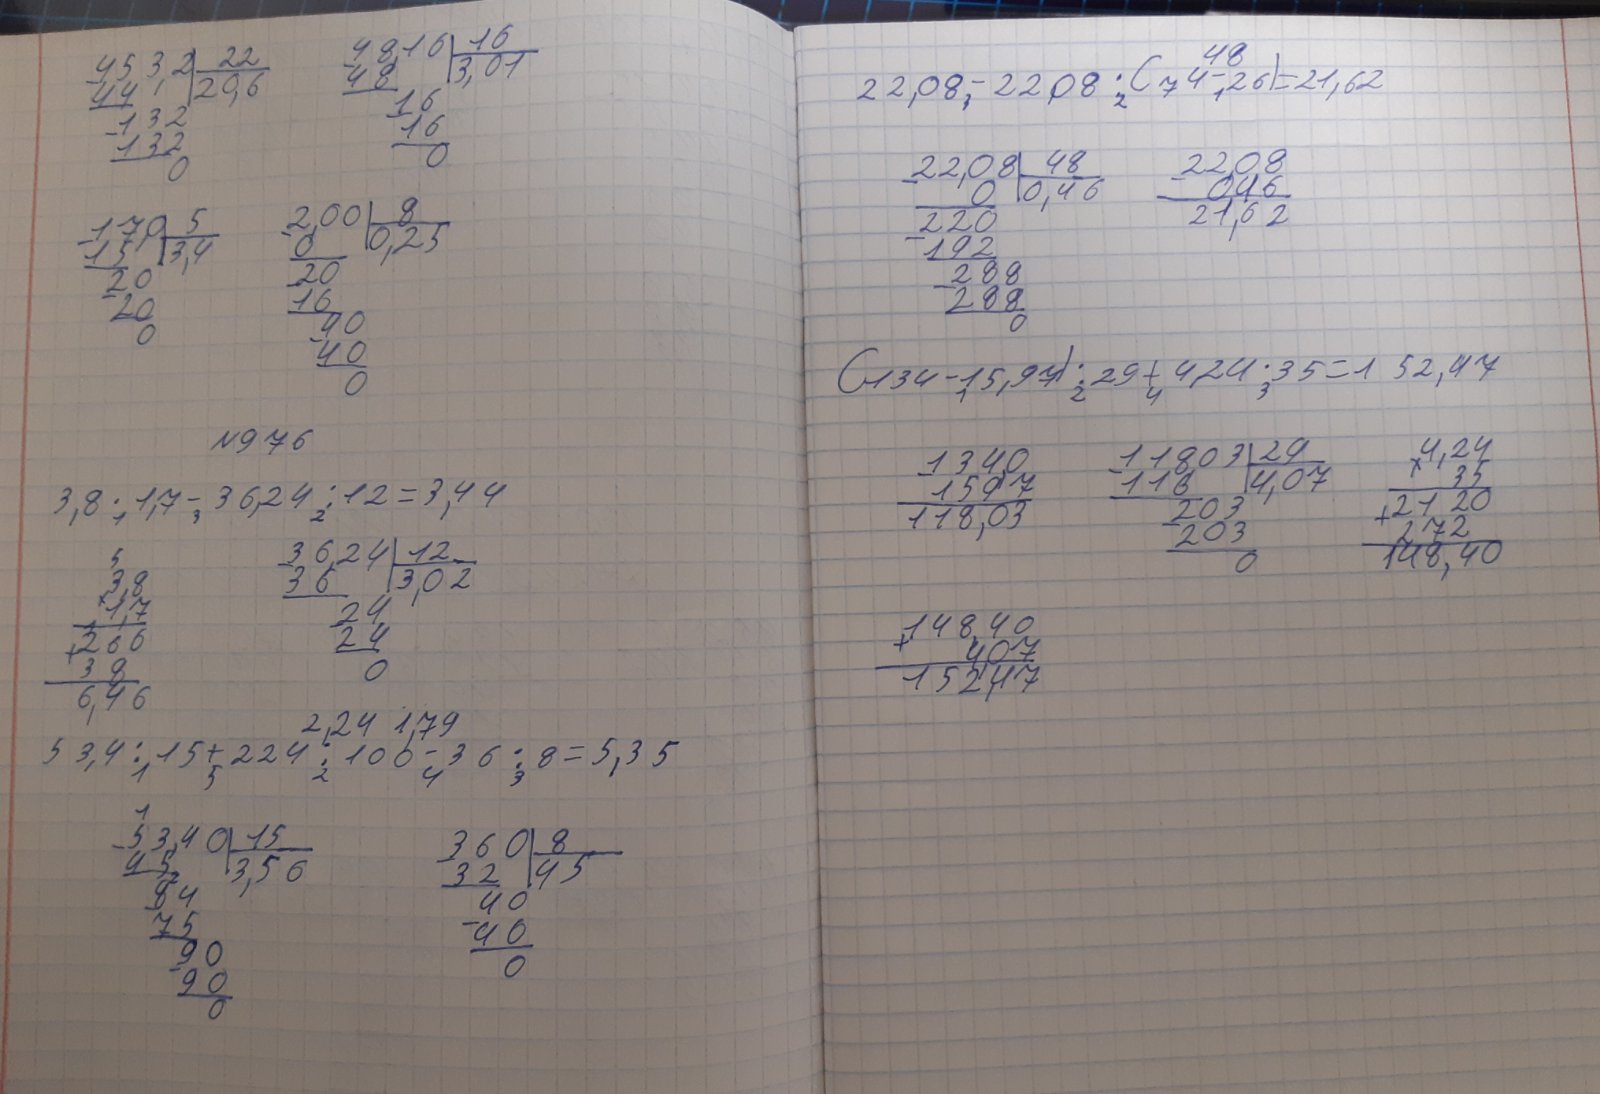 453,2 | 22
44 | 20,6
132
132
0
48,16 | 16
48 | 3,01
16
16
0
17,0 | 5
15 | 3,4
20
20
0
2,00 | 8
0 | 0,25
20
16
40
40
0
№976
3,8 · 1,7 - 36,24 : 12 = 3,44
1 3 2
5
3,8
× 1,7
+ 266
38
6,46
36,24 | 12
36 | 3,02
24
24
0
2,24 1,79
53,4 : 15 + 224 : 100 - 36 : 8 = 5,35
1 5 2 4 3
1
53,40 | 15
45 | 3,56
84
75
90
90
0
360 | 8
32 | 45
40
40
0
48
22,08 - 22,08 : (74 - 26) = 21,62
3 2 1
22,08 | 48
0 | 0,46
220
192
288
288
0
22,08
0,46
21,62
(134 - 15,97) : 29 + 4,24 · 35 = 152,47
1 2 4 3
134,0
1597
118,03
11803 | 29
116 | 4,07
203
203
0
4,24
× 35
+ 2120
272
148,40
148,40
+ 4,07
152,47